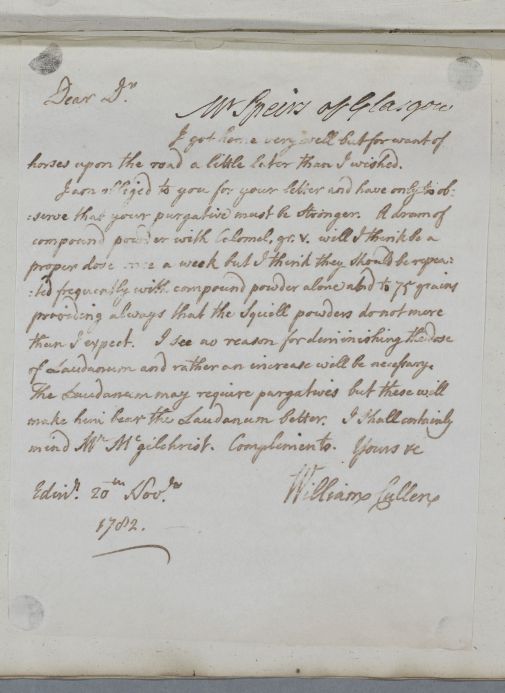 Dear Dr
Mr Speirs of Glasgow
I got home very well but for want of
horses upon the road a little later than I wished.
I am obliged to you for your letter and have only to ob-
:serve that your purgative must be stronger. A dram of
compound powder with Calomel, gr. v. will I think be a
proper dose once a week but I think they should be repea:
:ted frequently with compound powder alone and to 75 grains
providing always that the Squill powders do not more
than I expect. I see no reason for deminishing the dose
of Laudanum and rather an increase will be necessary.
The Laudanum may require purgatives but these will
make him bear the Laudanum better. I shall certainly
mind Mrs McGilchrist. Complements. Yours &c
Edinr. 20th Novr.
1782.
Wm
William Cullen